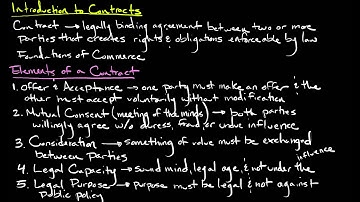 Introduction to Contracts
Contract → legally binding agreement between two or more
parties that creates rights & obligations enforceable by law
Foundations of Commerce
Elements of a Contract
1. Offer & Acceptance → one party must make an offer & the
other must accept voluntarily without modification
2. Mutual Consent (meeting of the minds) → both parties
willingly agree w/o duress, fraud, or undue influence
3. Consideration → something of value must be exchanged
between parties
4. Legal Capacity → sound mind, legal age, & not under the influence
5. Legal Purpose → purpose must be legal & not against
public policy